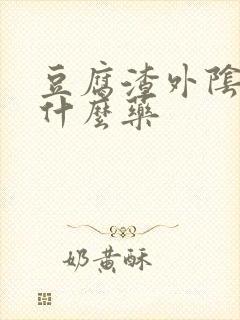 豆腐渣外陰
什麼藥
奶黃酥